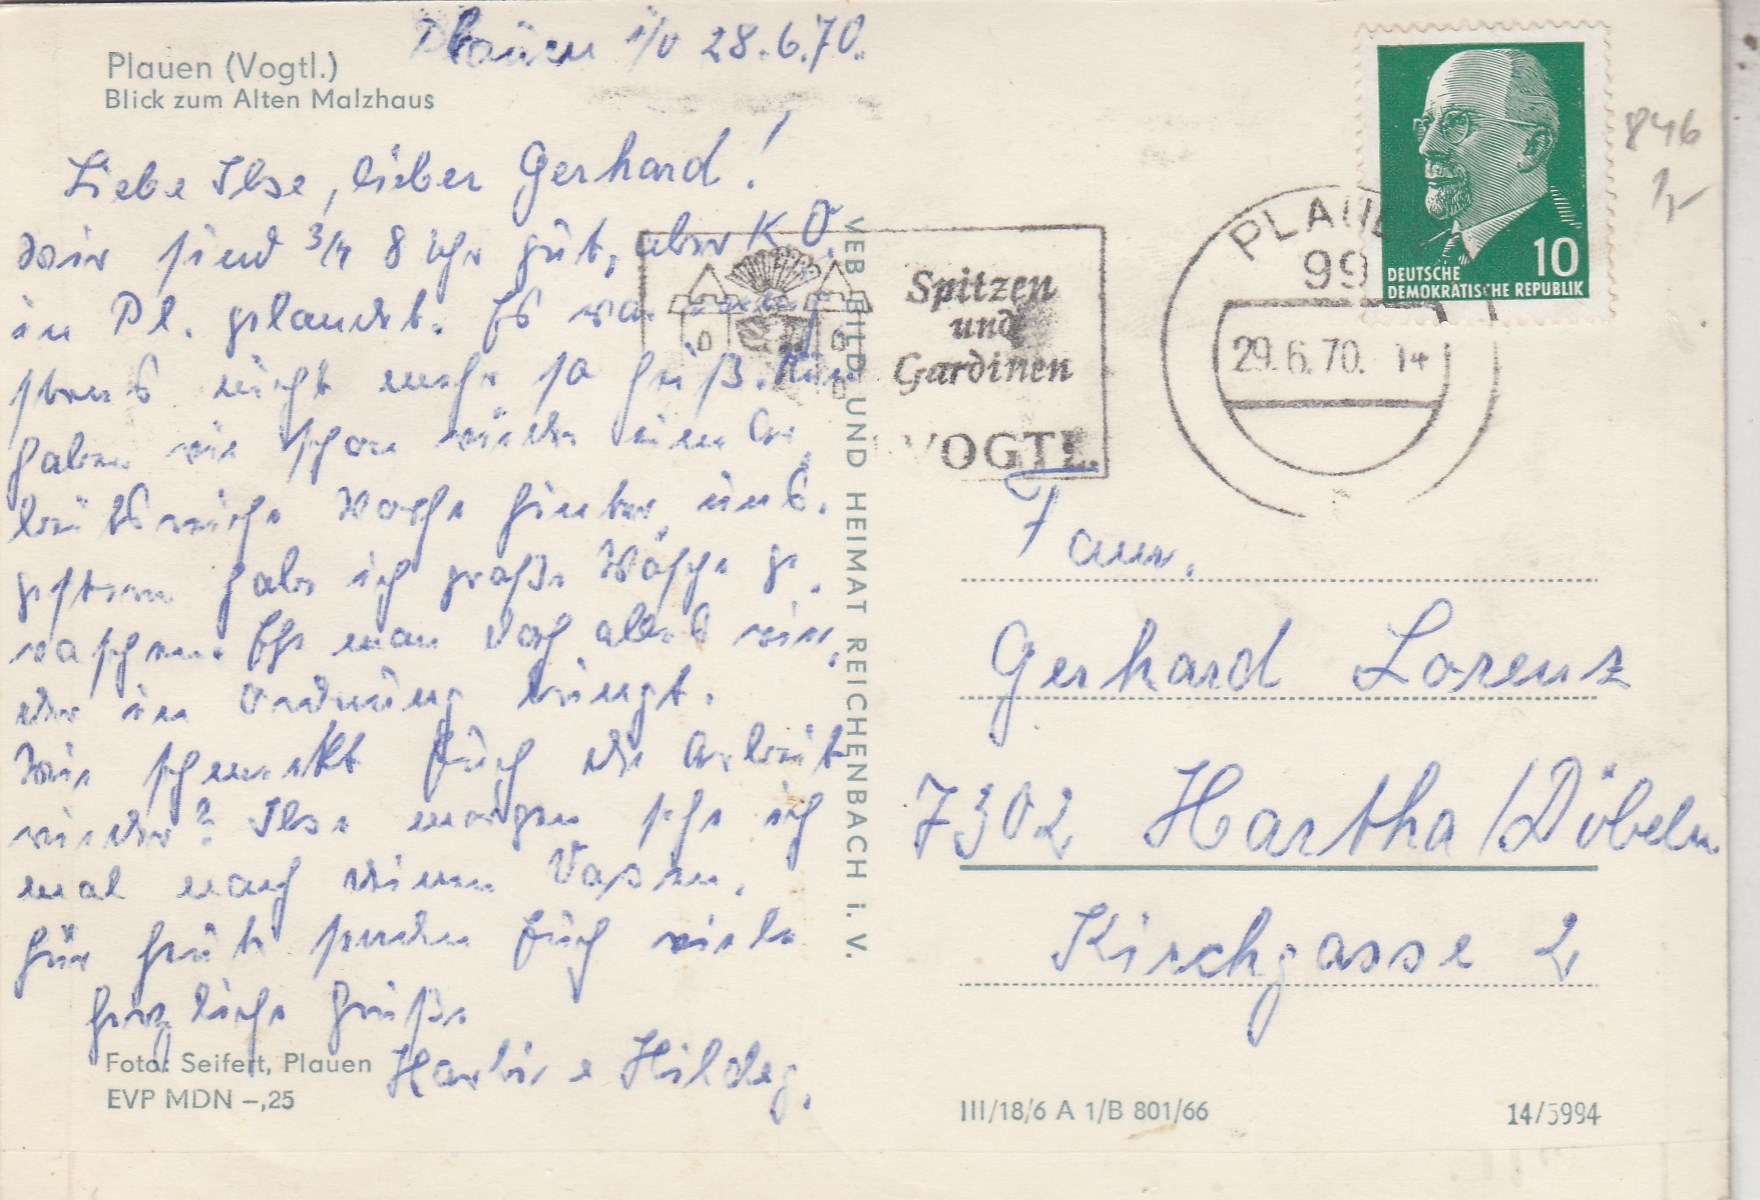 Plauen i/V 28.6.70.
Plauen (Vogtl.)
Blick zum Alten Malzhaus
Liebe Ilse, lieber Gerhard!
Wir sind 3/4 8 Uhr gut, aber K O.
in Pl. gelandet. Es war
nicht mehr so heiß. Nun
haben wir schon wieder eine Ar
beitsreiche Woche hinter uns.
gestern habe ich große Wäsche ge
waschen. Ehe man doch alles wie
der in Ordnung bringt.
Wie schmeckt Euch die Arbeit
wieder? Ilse morgen sehe ich
mal nach Vasen.
Für heute senden Euch viele
herzliche Grüße
Hildeg.
Foto: Seifert, Plauen
EVP MDN –,25
VEB BILD UND HEIMAT REICHENBACH i. V.
Spitzen
und
Gardinen
VOGTL.
PLAUEN
99
29.6.70. 14
10
DEUTSCHE
DEMOKRATISCHE REPUBLIK
846
Fam.
Gerhard Lorenz
7302 Hartha/Döbeln
Kirchgasse 2
III/18/6 A 1/B 801/66
14/5994